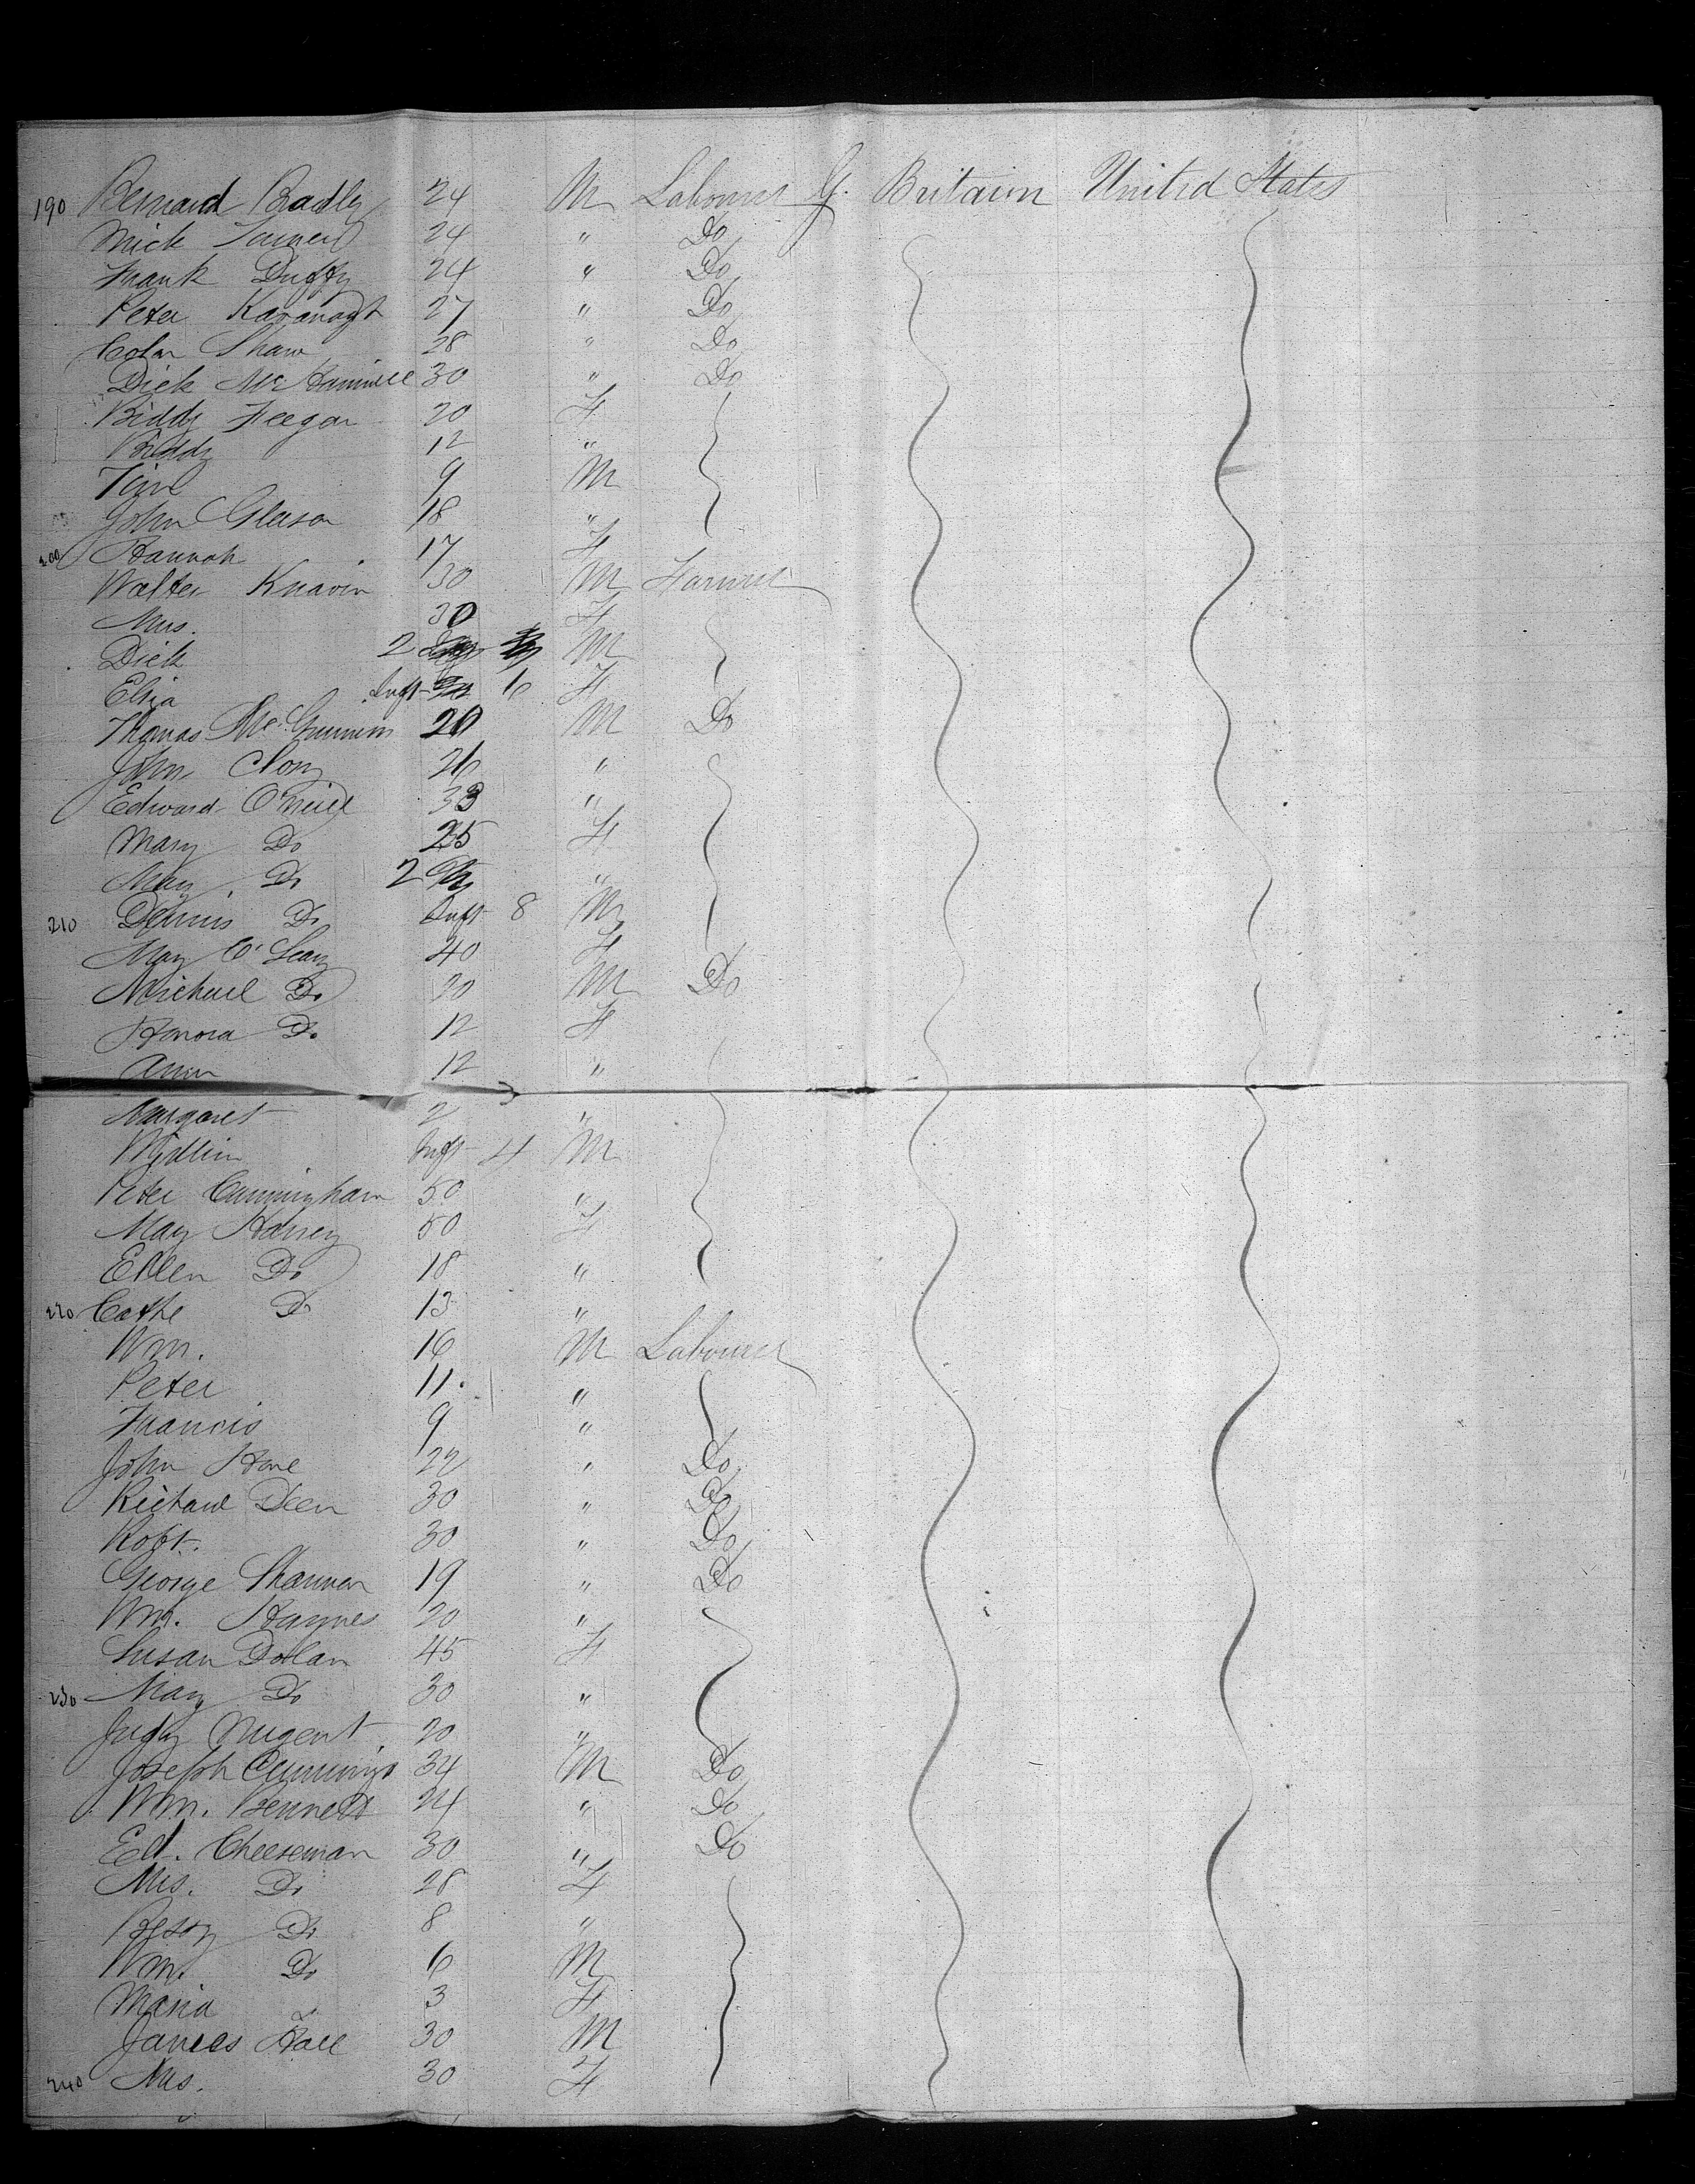 190 Bernard Bradley 24 M Labourer G. Britain United States
Mick 24 " Do
Frank Duffy 24 " Do
Peter Kavanagh 27 " Do
Colin Shaw 28 " Do
Dick 30 " Do
Biddy Feegan 20 F
Biddy 12 "
Tim 9 M
John Gleason 18 "
200 Hannah 17 F
Walter 30 M Farmer
Mrs. 30 F
Dick 2 M
Eliza Inft 6 F
Thomas 20 M Do
John 26 "
Edward O'Neill 33 "
Mary Do 25 F
Mary Do 2 "
210 Dennis Do Inft 8 M
Mary O'Leary 40 F
Michael Do 20 M Do
Honora Do 12 F
Ann 12 "
Margaret 2 "
William Inft 4 M
Peter Cunningham 50 "
Mary Harvey 50 F
Ellen Do 18 "
220 Cathe Do 13 "
Wm. 16 M Labourer
Peter 11 "
Francis 9 "
John 22 " Do
Richard Deen 30 " Do
Robt. 30 " Do
George Shannon 19 " Do
Wm. Haynes 20 "
Susan Dolan 45 F
230 Mary Do 30 "
Judy Nugent 20 "
Joseph Cummings 34 M Do
Wm. Bennett 24 " Do
Ed. Cheeseman 30 " Do
Mrs. Do 28 F
Bessy Do 8 "
Wm. Do 6 M
Maria 3 F
James Hall 30 M
240 Mrs. 30 F